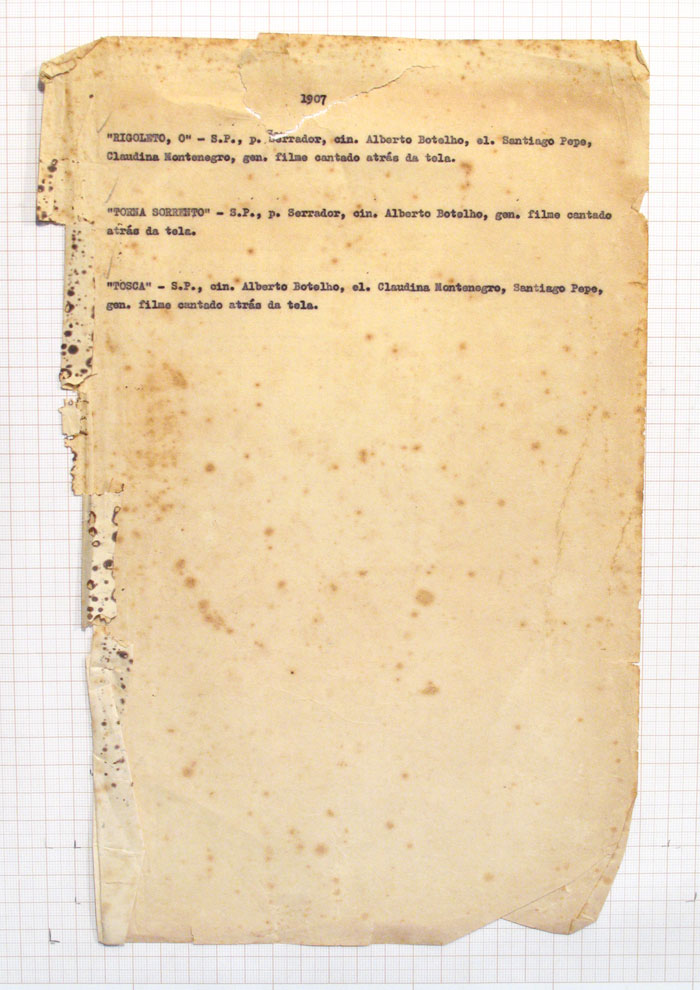 1907
"RIGOLETO, O" - S.P., p. Serrador, cin. Alberto Botelho, el. Santiago Pepe,
Claudina Montenegro, gen. filme cantado atrás da tela.
"TORNA SORRENTO" - S.P., p. Serrador, cin. Alberto Botelho, gen. filme cantado
atrás da tela.
"TOSCA" - S.P., cin. Alberto Botelho, el. Claudina Montenegro, Santiago Pepe,
gen. filme cantado atrás da tela.